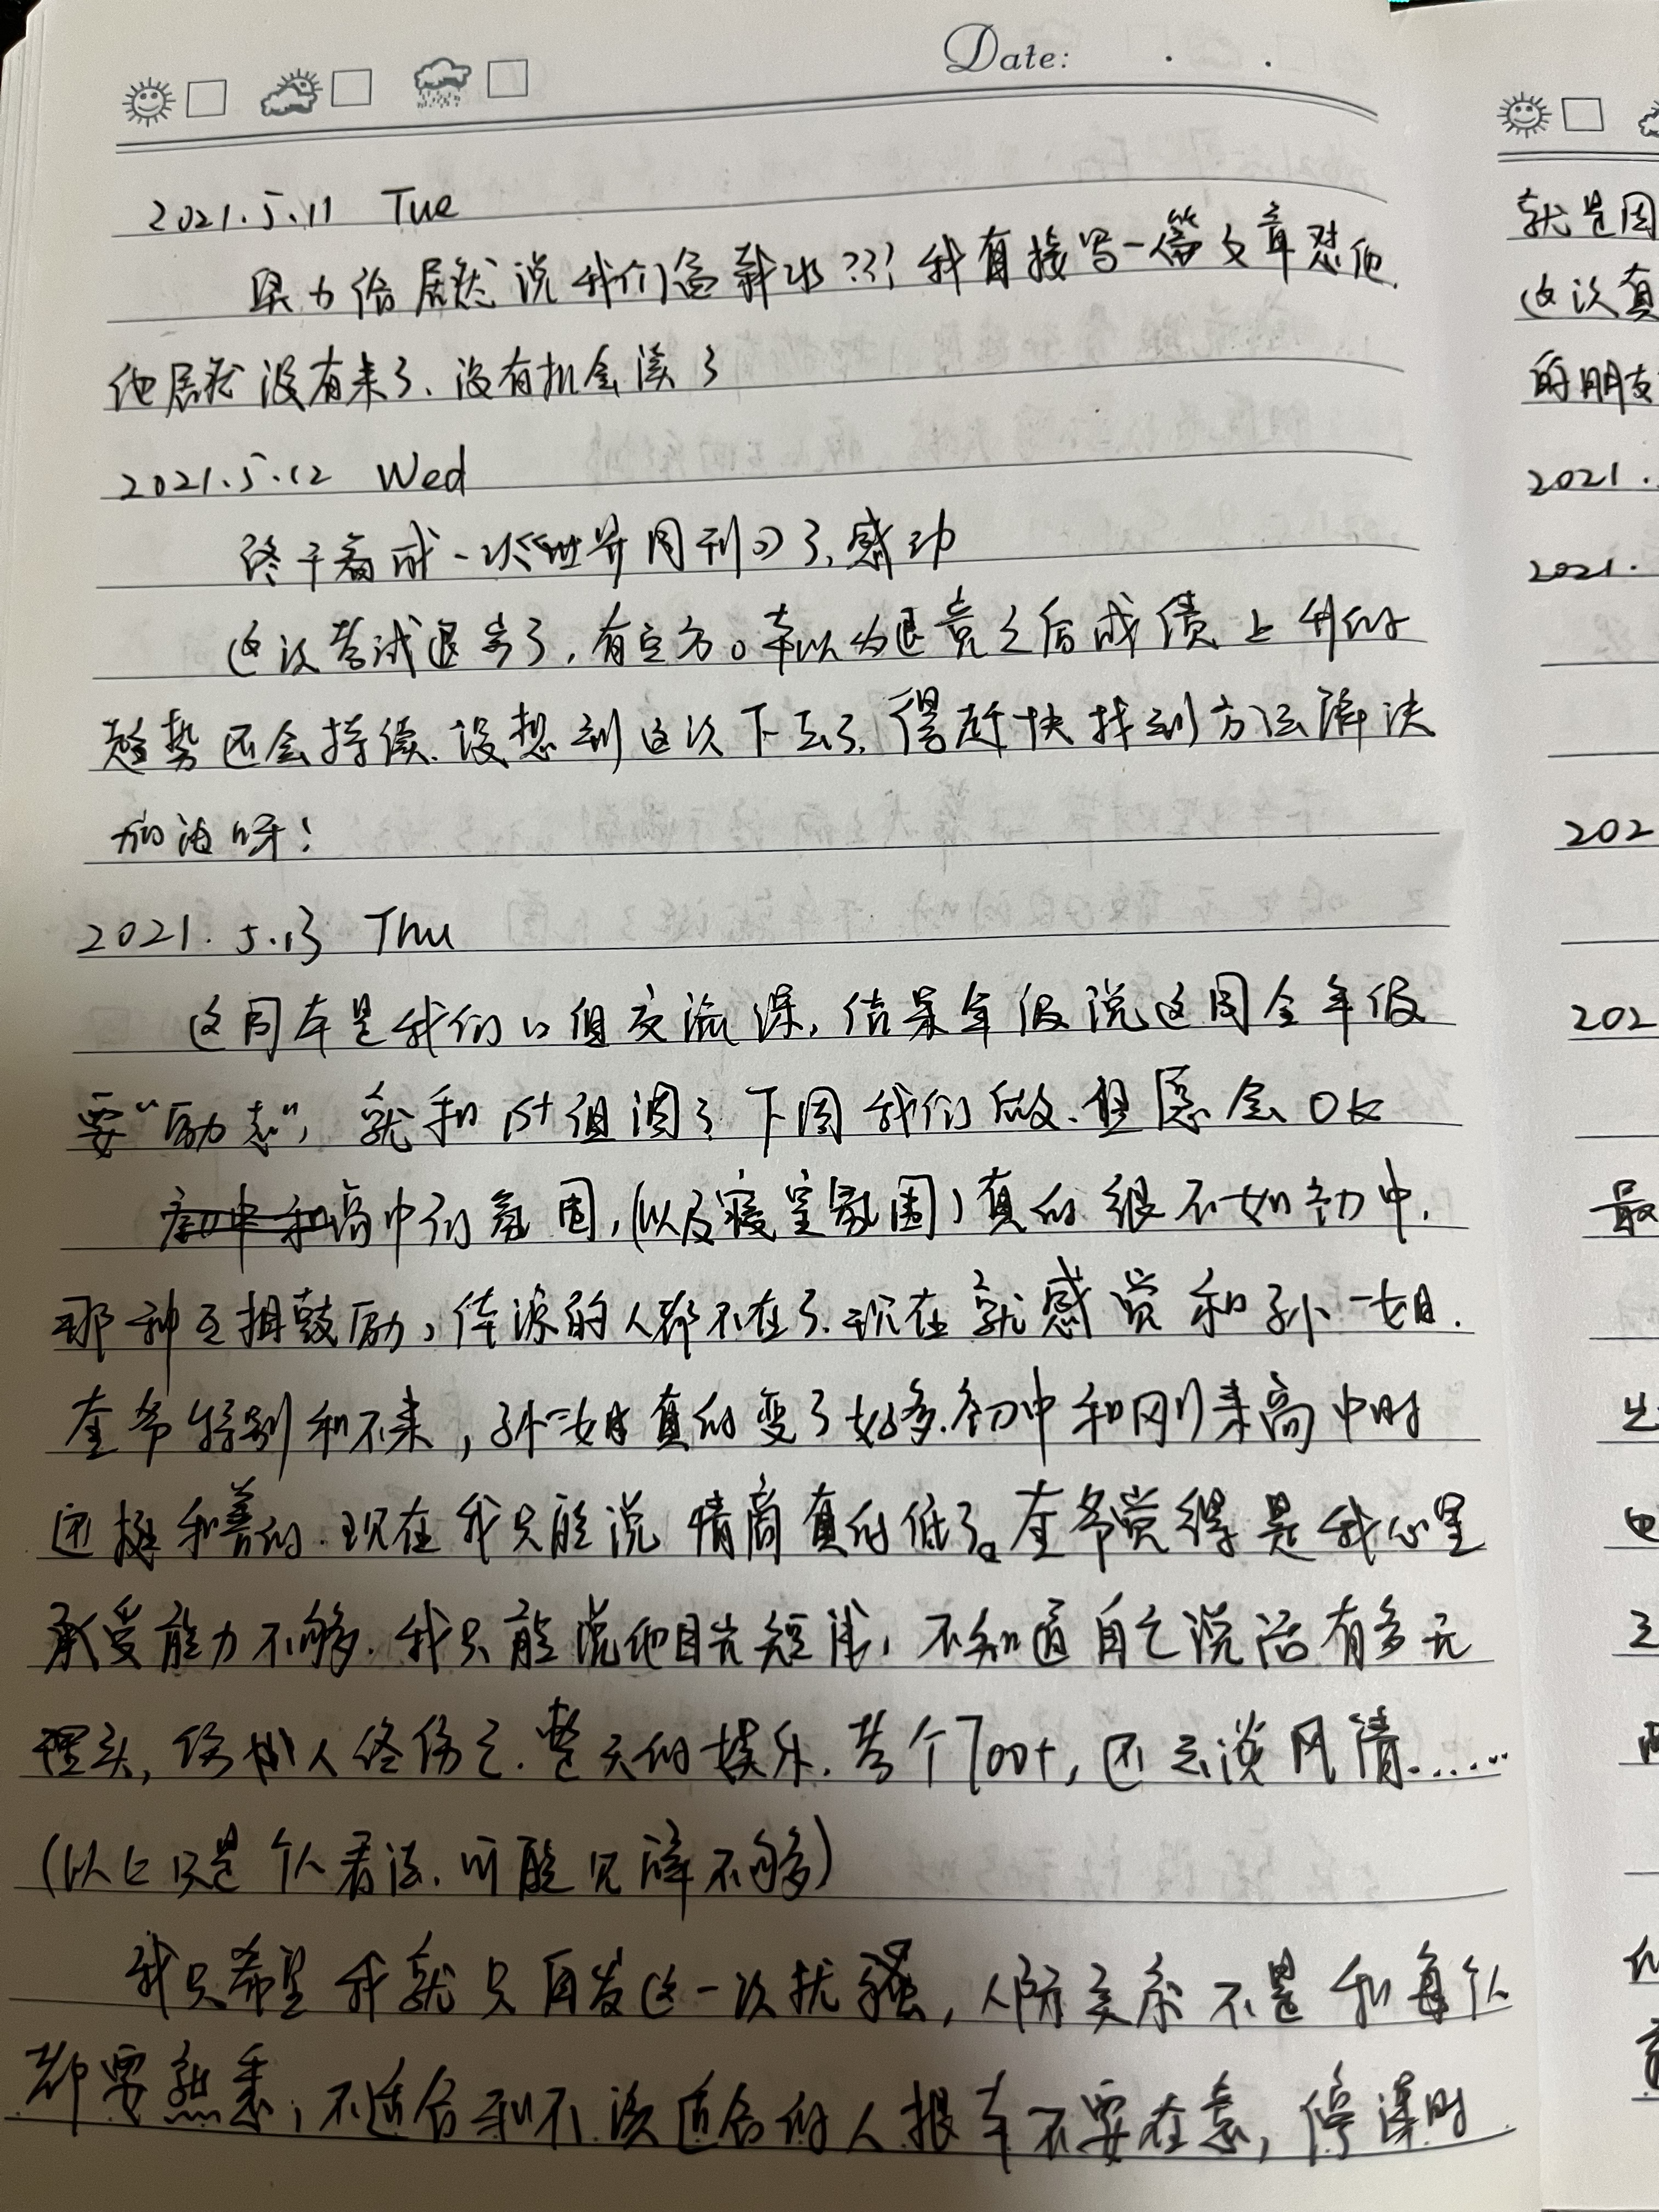 Date:
2021.5.11 Tue
居然说我们 ??! 我直接写一篇文章怼他.
他居然没有来了、没有机会读了
2021.5.12 Wed
终于看成一次《世界周刊》了,感动
这次考试退步了,有空方。本以为退竞之后成绩上升的
趋势还会持续.没想到这次下去了,得赶快找到方法解决
加油呀!
2021.5.13 Thu
这周本是我们 组交流课,结果年级说这周全年级
要“励志”,就和 组调了 下周我们做.但愿会OK
高中的氛围,(以及寝室氛围)真的很不如初中.
那种互相鼓励, 的人都不在了.现在就感觉和孙一姐.
奎爷特别和不来,孙一姐真的变了好多.初中和刚来高中时
还挺和善的.现在我只能说情商真的低了。奎爷觉得是我心里
承受能力不够.我只能说他目光短浅,不知道自己说话有多无
厘头,伤 人终伤己.整天的娱乐.考个700+,还去谈风情......
(以上只是个人看法.可能见解不够)
我只希望我就只再发这一次 骚,人际交系不是和每个人
都要熟悉,不适合和不 适合的人根本不要在意,停课时
就是因
这次真
的朋友
2021.
2021.
202
202
最